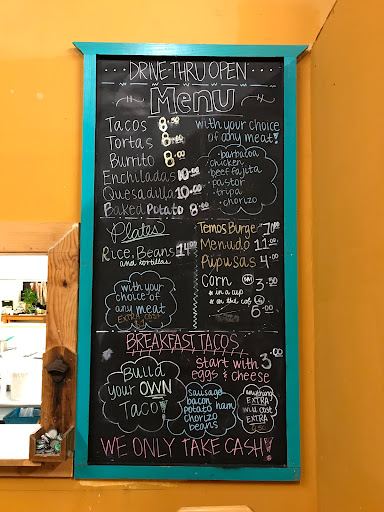 DRIVE-THRU OPEN
MENU
Tacos 8.50
Tortas 8.00
Burrito 8.00
Enchiladas 10.00
Quesadilla 10.00
Baked Potato 8.00
with your choice
of any meat!
• barbacoa
chicken
beef fajita
pastor
tripa
chorizo
Plates
Rice, Beans 14.00
and tortillas
with your
choice of
any meat
EXTRA COST
Temos Burger
Menudo 11.00
Pupusas 4.00
Corn SM 3.50
* in a cup
* on the cob LG
6.00
BREAKFAST TACOS
Build
your OWN
Taco!
Start with 3.00
eggs & cheese
sausage
bacon
potato ham
chorizo
beans
anything
EXTRA
will cost
EXTRA
WE ONLY TAKE CASH!